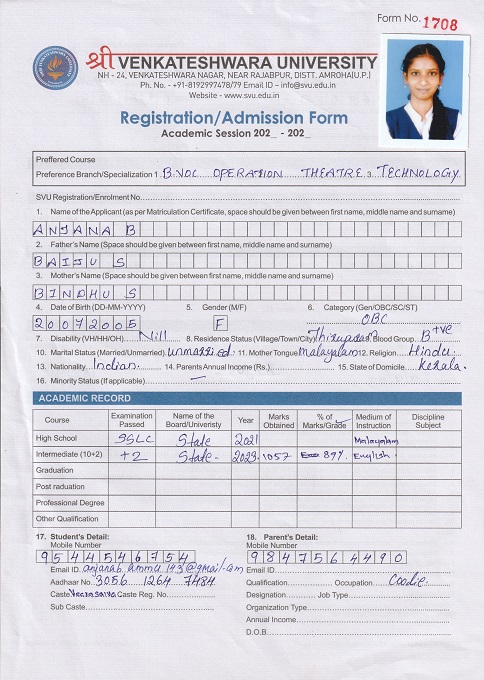 Form No. 1708
श्री VENKATESHWARA UNIVERSITY
NH - 24, VENKATESHWARA NAGAR, NEAR RAJABPUR, DISTT. AMROHA(U.P.)
Ph. No. - +91-8192997478/79 Email ID – info@svu.edu.in
Website - www.svu.edu.in
Registration/Admission Form
Academic Session 202_ - 202_
Preffered Course
Preference Branch/Specialization 1. B.VOC OPERATION THEATRE 3. TECHNOLOGY
SVU Registration/Enrolment No
1. Name of the Applicant (as per Matriculation Certificate, space should be given between first name, middle name and surname)
ANJANA B
2. Father's Name (Space should be given between first name, middle name and surname)
BAIJU S
3. Mother's Name (Space should be given between first name, middle name and surname)
BINDHU S
4. Date of Birth (DD-MM-YYYY) 5. Gender (M/F) 6. Category (Gen/OBC/SC/ST)
20072005 F OBC
7. Disability (VH/HH/OH) Nill 8. Residence Status (Village/Town/City) 9. Blood Group B+ve
10. Marital Status (Married/Unmarried) unmarried 11. Mother Tongue malayalam 12. Religion Hindu
13. Nationality Indian 14. Parents Annual Income (Rs.) 15. State of Domicile kerala
16. Minority Status (If applicable) —
ACADEMIC RECORD
Course Examination Passed Name of the Board/Univeristy Year Marks Obtained % of Marks/Grade Medium of Instruction Discipline Subject
High School SSLC State 2021 Malayalam
Intermediate (10+2) +2 State 2023 1057 89% English
Graduation
Post raduation
Professional Degree
Other Qualification
17. Student's Detail: 18. Parent's Detail:
Mobile Number Mobile Number
9544546754 9847564490
Email ID anjanab.ammu143@gmail.com Email ID
Aadhaar No 3056 1264 7484 Qualification Occupation Coolie
Caste Veerasaiva Caste Reg. No. Designation Job Type
Sub Caste Organization Type
Annual Income
D.O.B.